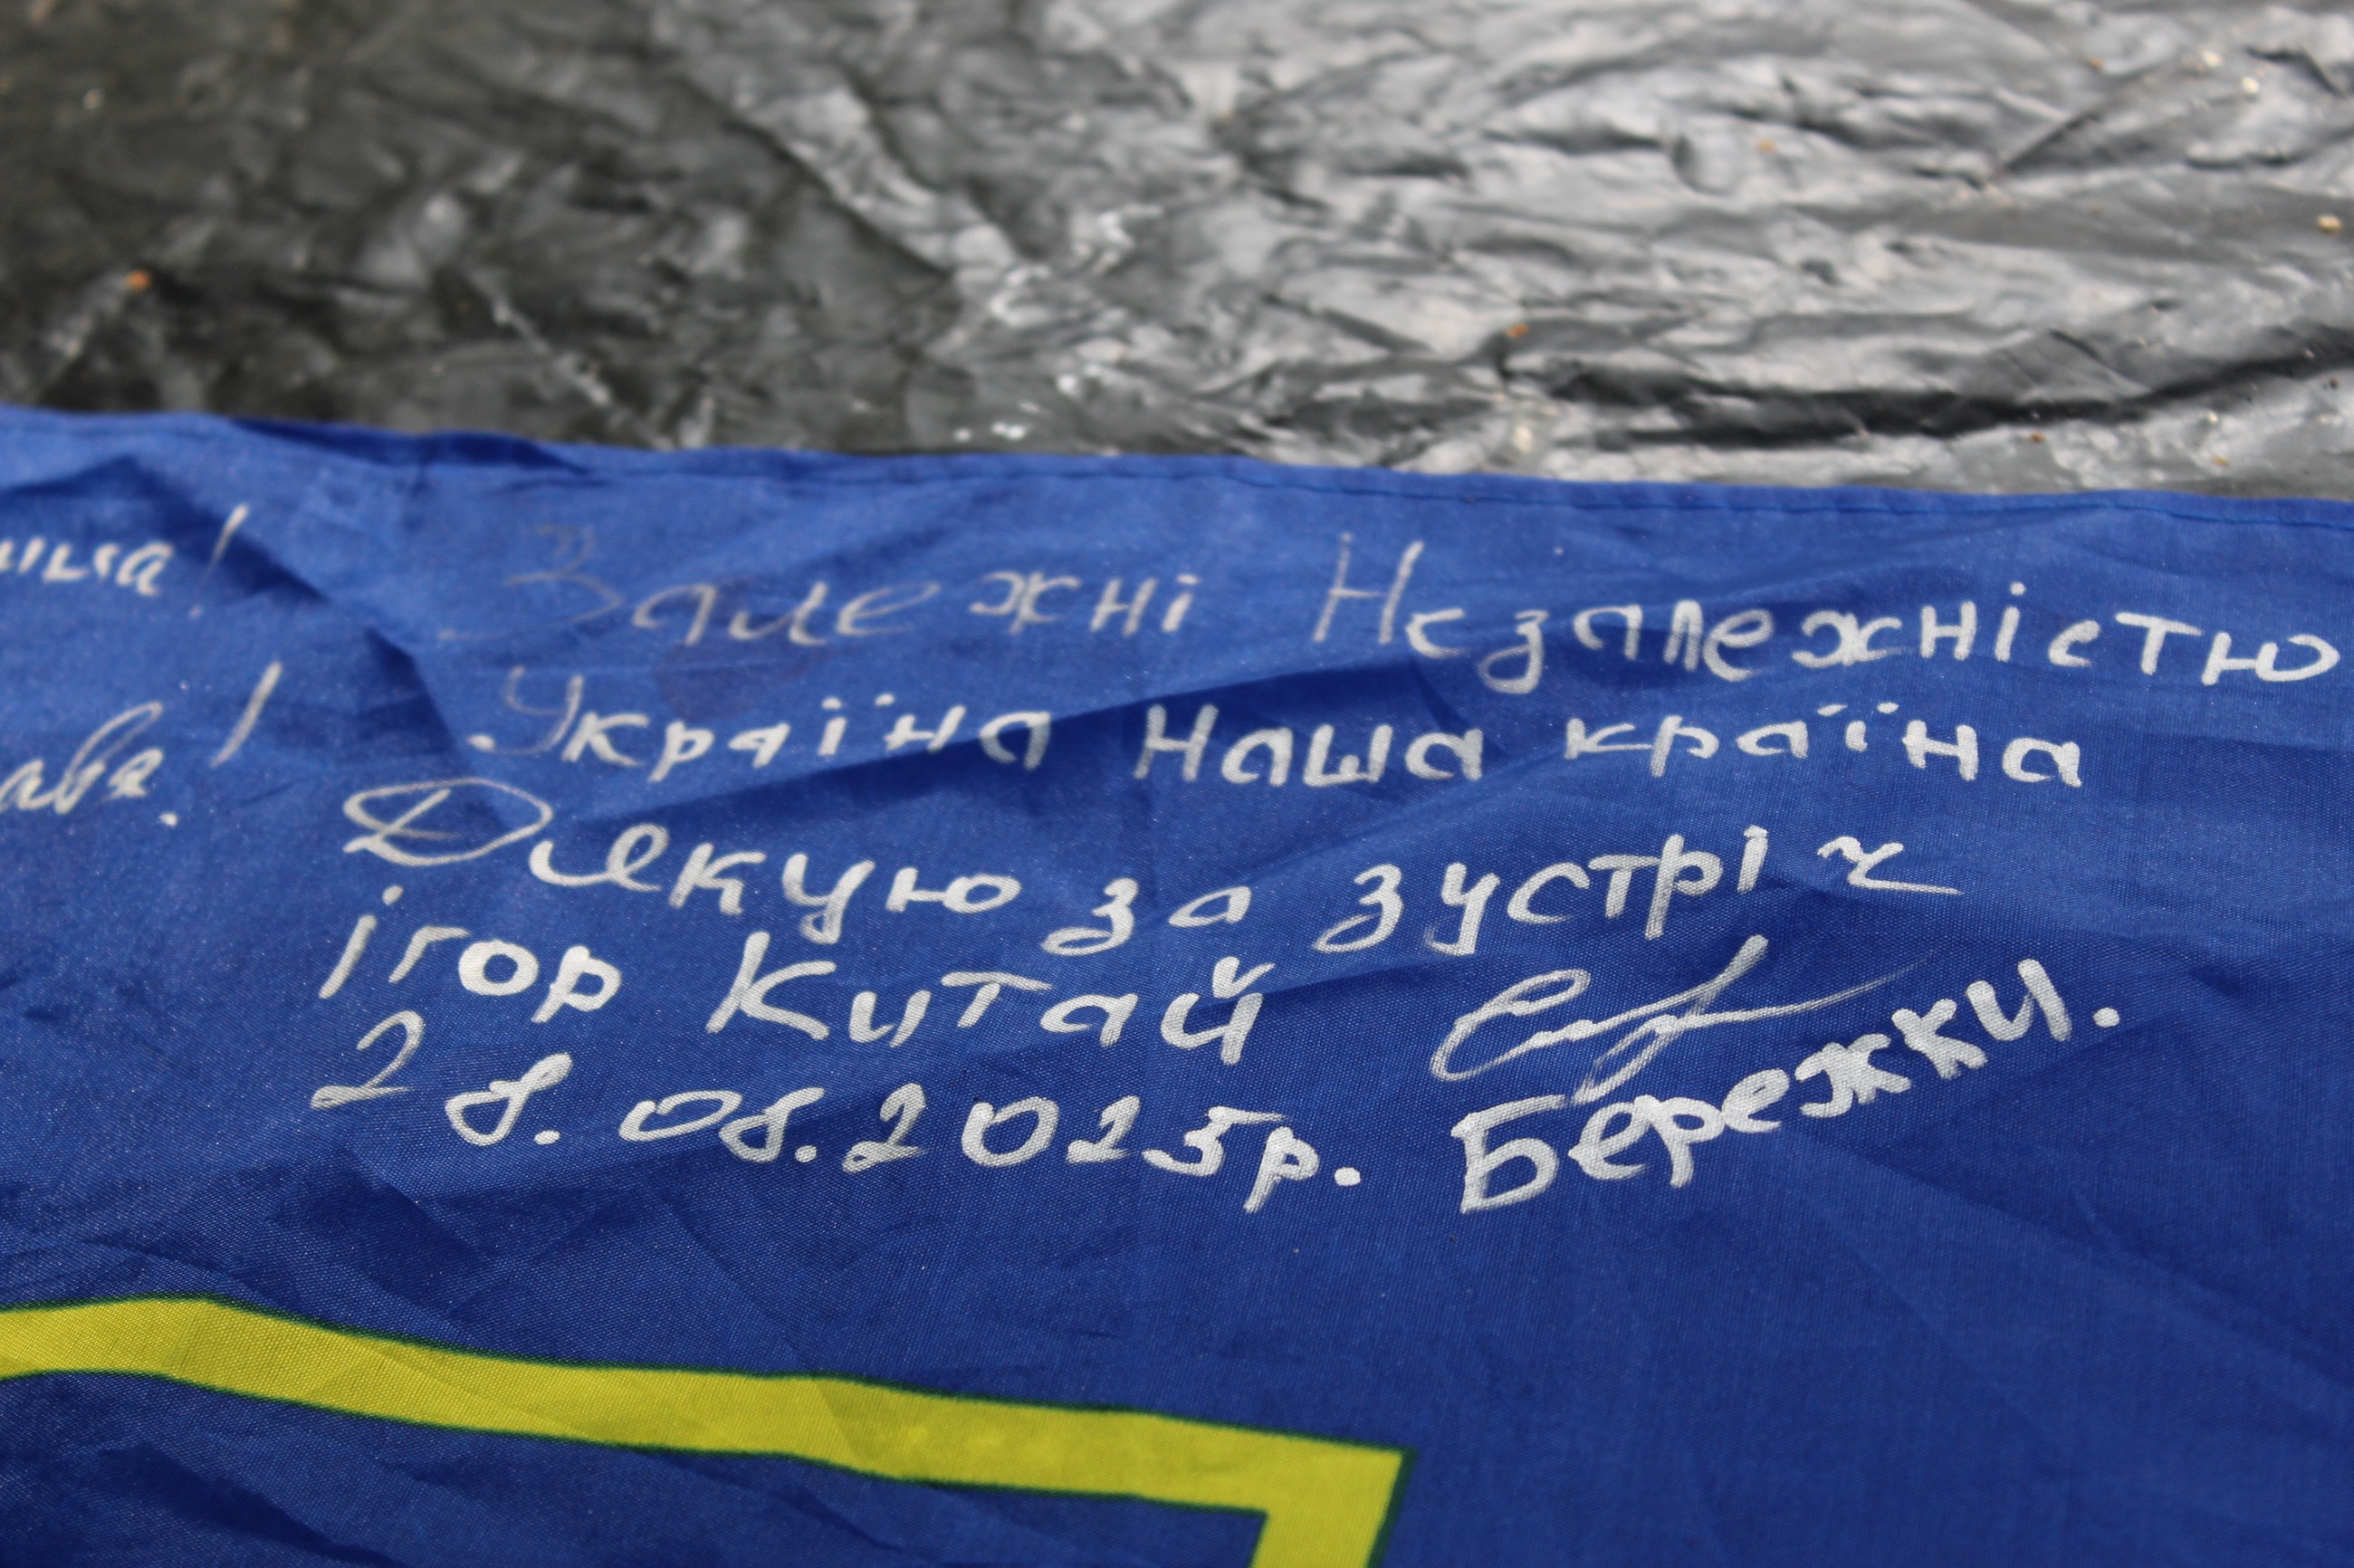 Залежні Незалежністю
Україна Наша країна
Дякую за зустріч
ігор Китай
28.08.2025р. Бережки.